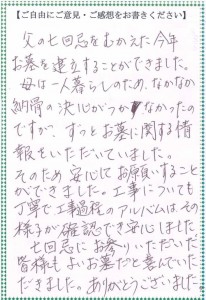 【ご自由にご意見・ご感想をお書きください】
父の七回忌をむかえた今年
お墓を建立することができました。
母は一人暮らしのため、なかなか
納骨の決心がつかなかったの
ですが、ずっとお墓に関する情
報をいただいていました。
そのため安心してお願いすること
ができました。工事についても
丁寧で、工事過程のアルバムは、その
様子が確認でき安心しました
七回忌にお参りいただいた
皆様も よいお墓だと喜んでいた
だきました。ありがとうございました。